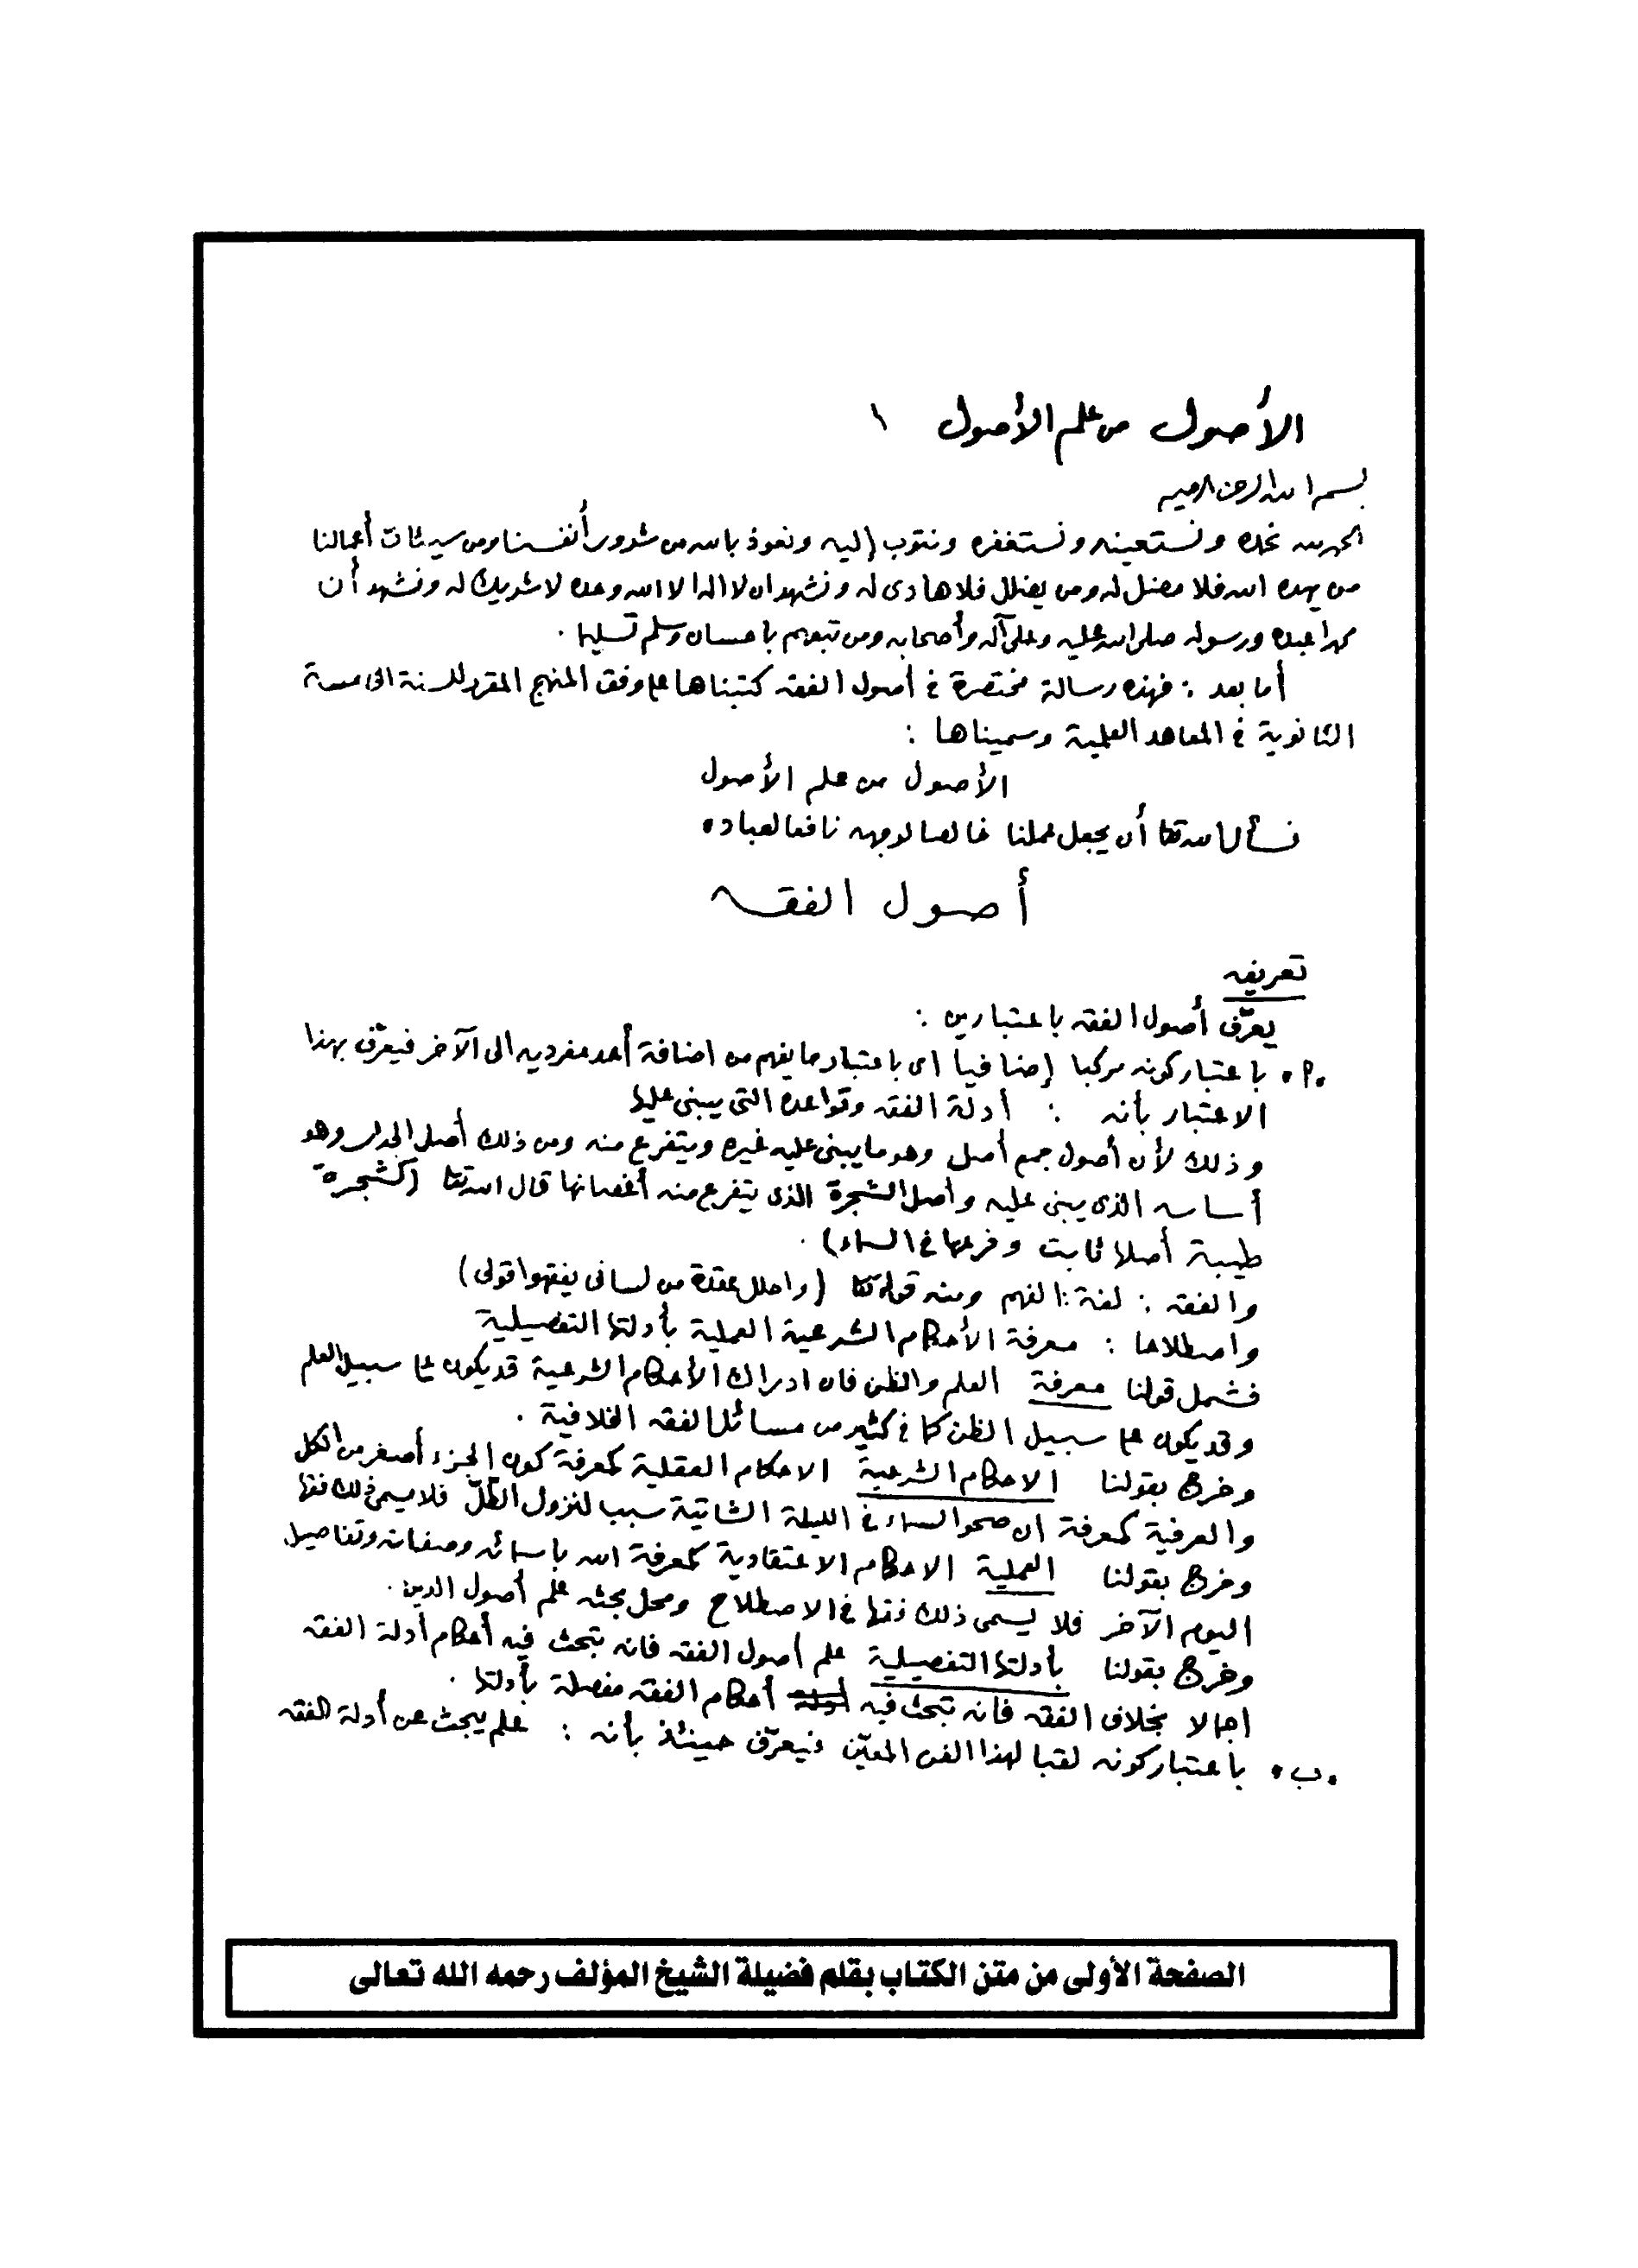 الأصول من علم الأصول ١
بسم الله الرحمن الرحيم
الحمد لله نحمده ونستعينه ونستغفره ونتوب إليه ونعوذ بالله من شرور أنفسنا ومن سيئات أعمالنا
من يهده الله فلا مضل له ومن يضلل فلا هادى له ونشهد ان لا اله الا الله وحده لا شريك له ونشهد أن
محمدا عبده ورسوله صلى الله عليه وعلى آله وأصحابه ومن تبعهم باحسان وسلم تسليما .
أما بعد : فهذه رسالة مختصرة في أصول الفقه كتبناها على وفق المنهج المقرر للسنة الثالثة
الثانوية في المعاهد العلمية وسميناها :
الأصول من علم الأصول
نسأل الله تعالى أن يجعل عملنا خالصا لوجهه نافعا لعباده
أصول الفقه
تعريفه
يعرّف أصول الفقه باعتبارين :
٠أ٠ باعتبار كونه مركبا إضافيا اى باعتبار ما يفهم من اضافة أحد مفرديه الى الآخر فيعرّف بهذا
الاعتبار بأنه : أدلة الفقه وقواعده التى يبنى عليها
وذلك لأن أصول جمع أصل وهو ما يبنى عليه غيره ويتفرع منه ومن ذلك أصل الجدار وهو
أساسه الذى يبنى عليه وأصل الشجرة الذى يتفرع منه أغصانها قال الله تعالى (كشجرة
طيبة أصلها ثابت وفرعها في السماء) .
والفقه : لغة : الفهم ومنه قوله تعالى (واحلل عقدة من لسانى يفقهوا قولى)
واصطلاحا : معرفة الأحكام الشرعية العملية بأدلتها التفصيلية
فشمل قولنا معرفة العلم والظن فان ادراك الأحكام الشرعية قد يكون على سبيل العلم
وقد يكون على سبيل الظن كما في كثير من مسائل الفقه الخلافية .
وخرج بقولنا الاحكام الشرعية الاحكام العقلية كمعرفة كون الجزء أصغر من الكل
والعرفية كمعرفة ان صحو السماء في الليلة الشاتية سبب لنزول الطلّ فلا يسمى ذلك فقها
وخرج بقولنا العملية الاحكام الاعتقادية كمعرفة الله باسمائه وصفاته وتفاصيل
اليوم الآخر فلا يسمى ذلك فقها في الاصطلاح ومحل بحثه علم أصول الدين .
وخرج بقولنا بأدلتها التفصيلية علم أصول الفقه فانه تبحث فيه أحكام أدلة الفقه
اجمالا بخلاف الفقه فانه تبحث فيه أدلة أحكام الفقه مفصلة بأدلتها .
٠ب٠ باعتبار كونه لقبا لهذا الفن المعيّن فيعرّف حينئذ بأنه : علم يبحث عن أدلة الفقه
الصفحة الأولى من متن الكتاب بقلم فضيلة الشيخ المؤلف رحمه الله تعالى